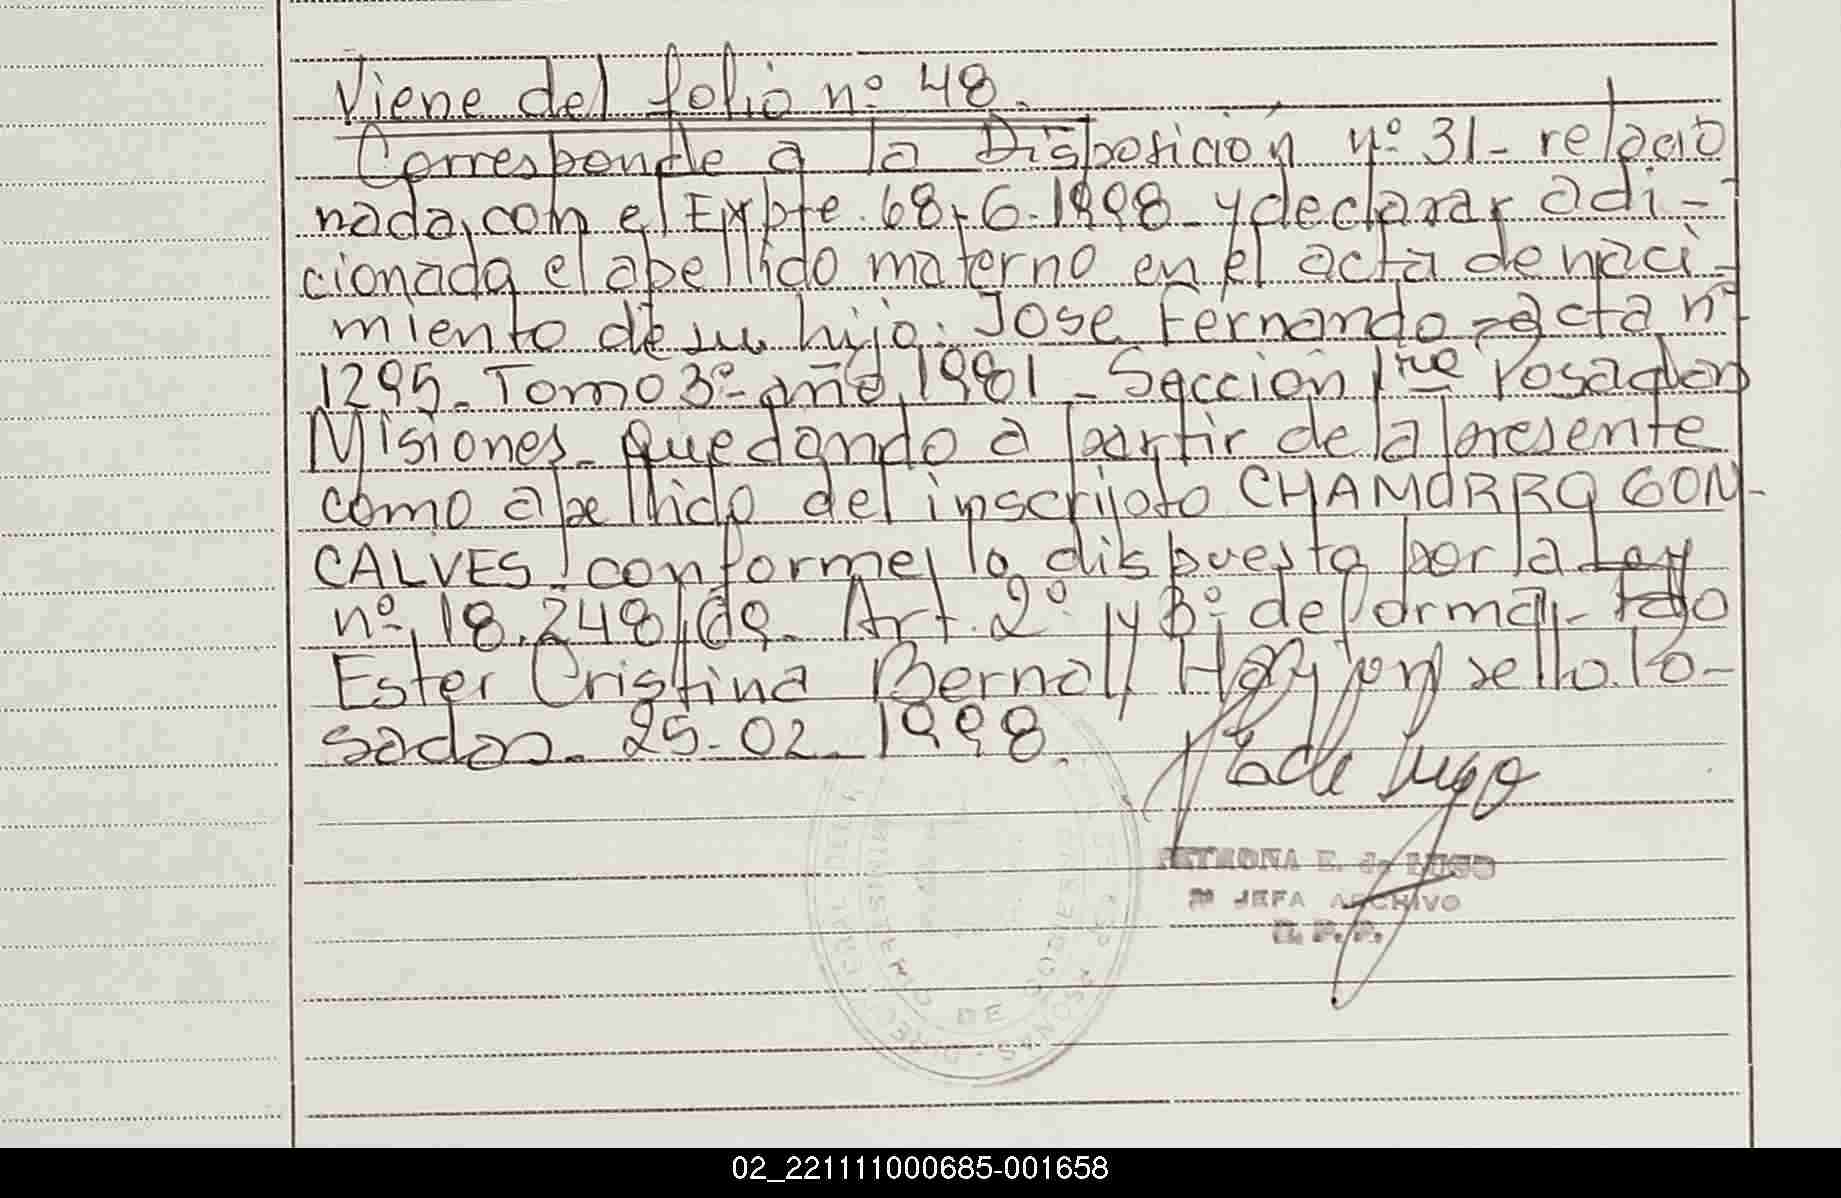 Viene del folio nº 48.
Corresponde a la Disposición nº 31 - relacio
nada, con el Expte. 68-G-1998 - y declarar adi-
cionada el apellido materno en el acta de naci-
miento de su hijo: Jose Fernando - acta nº
1295 - Tomo 3º - año 1981 - Sección 1ra Posadas
Misiones - quedando a partir de la presente
como apellido del inscripto CHAMORRO GON-
CALVES. conforme lo dispuesto por la Ley
nº 18.248/69 - Art. 2º y 3º de forma - Fdo
Ester Cristina Bernal / Hay un sello. Po-
sadas - 25-02-1998.
E de Lugo
PETRONA E. de LUGO
JEFA ARCHIVO
R. P. P.
MINISTERIO DE GOBIERNO
DIRECC GRAL DEL
PERSONAS
02_221111000685-001658